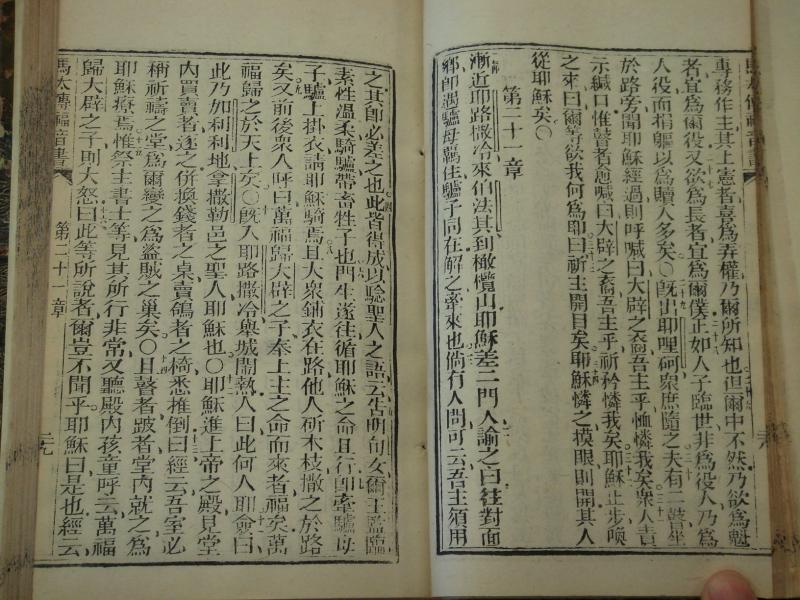 馬太傳福音書
專務作主其上憲者喜為弄權乃爾所知也但爾中不然乃欲為魁
者宜為爾役又欲為長者宜為爾僕正如人子臨世非為役人乃為
人役而捐軀以為贖人多矣○既出耶哩柯衆庶隨之夫有二瞽坐
於路旁聞耶穌經過則呼喊曰大辟之裔吾主乎恤憐我矣衆人責
示緘口惟瞽者愈喊曰大辟之裔吾主乎祈矜憐我矣耶穌止步喚
之來曰爾等欲我何為耶曰祈主開目矣耶穌憐之摸眼則開其人
從耶穌矣○
第二十一章
漸近耶路撒冷來伯法其到橄欖山耶穌差二門人諭之曰往對面
鄉即遇驢母羈住驢子同在解之牽來也倘有人問可云吾主須用
之其即必差之也此皆得成以驗聖人之語云告明旬女爾主臨
素性溫柔騎驢帶畜牲子也門生遂往循耶穌之命且行即牽驢母
子驢上掛衣請耶穌騎焉且大衆鋪衣在路他人斫木枝撒之於路
矣又前後衆人呼曰萬福歸大辟之子奉上主之命而來者福矣萬
福歸之於天上矣○既入耶路撒冷舉城鬧熱人曰此何人耶僉曰
此乃加利利地拿撒勒邑之聖人耶穌也○耶穌進上帝之殿見堂
內買賣者逐之併換錢者之桌賣鴿者之椅悉推倒曰經云吾室必
稱祈禱之堂爲爾變之爲盜賊之巢矣○且瞽者跛者堂內就之爲
耶穌療焉惟祭主書士等見其所行非常又聽殿內孩童呼云萬福
歸大辟之子則大怒曰此等所說者爾豈不聞乎耶穌曰是也經云
馬太傳福音書
第二十一章
二九